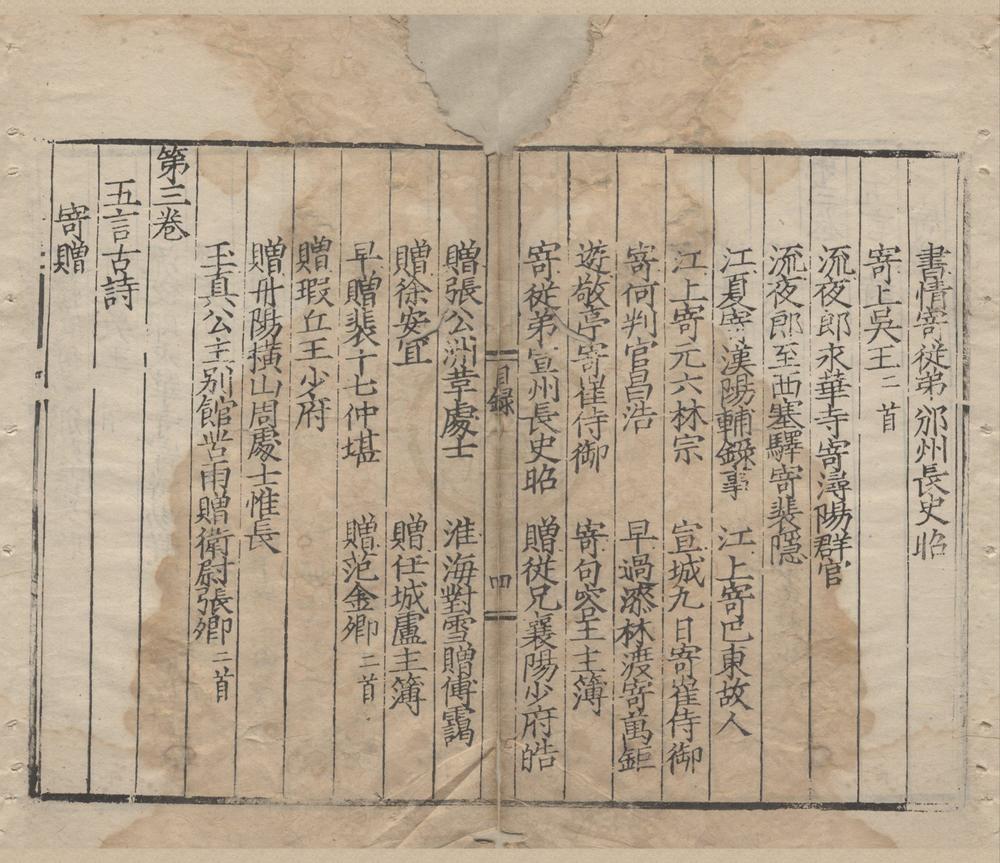 書情寄從弟邠州長史昭
寄上吳王二首
流夜郎永華寺寄潯陽群官
流夜郎至西塞驛寄裴隱
江夏寄漢陽輔錄事 江上寄巴東故人
江上寄元六林宗 宣城九日寄崔侍御
寄何判官昌浩 早過漆林渡寄萬鉅
遊敬亭寄崔侍御 寄句容王主簿
寄從弟宣州長史昭 贈從兄襄陽少府皓
目錄 四
贈張公洲革處士 淮海對雪贈傅靄
贈徐安宜 贈任城盧主簿
早贈裴十七仲堪 贈范金卿二首
贈瑕丘王少府
贈丹陽橫山周處士惟長
玉真公主別館苦雨贈衛尉張卿二首
第三卷
五言古詩
寄贈